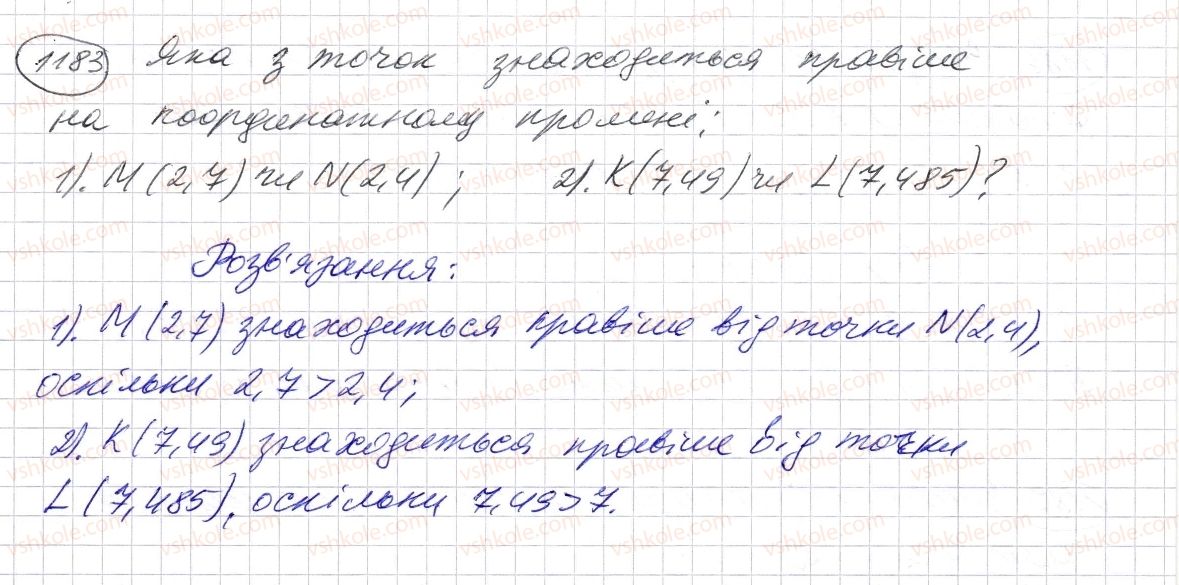 1183 Яка з точок знаходиться правіше
на координатному промені:
1). M (2,7) чи N(2,4) ; 2). K(7,49) чи L(7,485)?
Розв'язання:
1). M (2,7) знаходиться правіше від точки N(2,4),
оскільки 2,7>2,4;
2). K(7,49) знаходиться правіше від точки
L (7,485), оскільки 7,49>7.